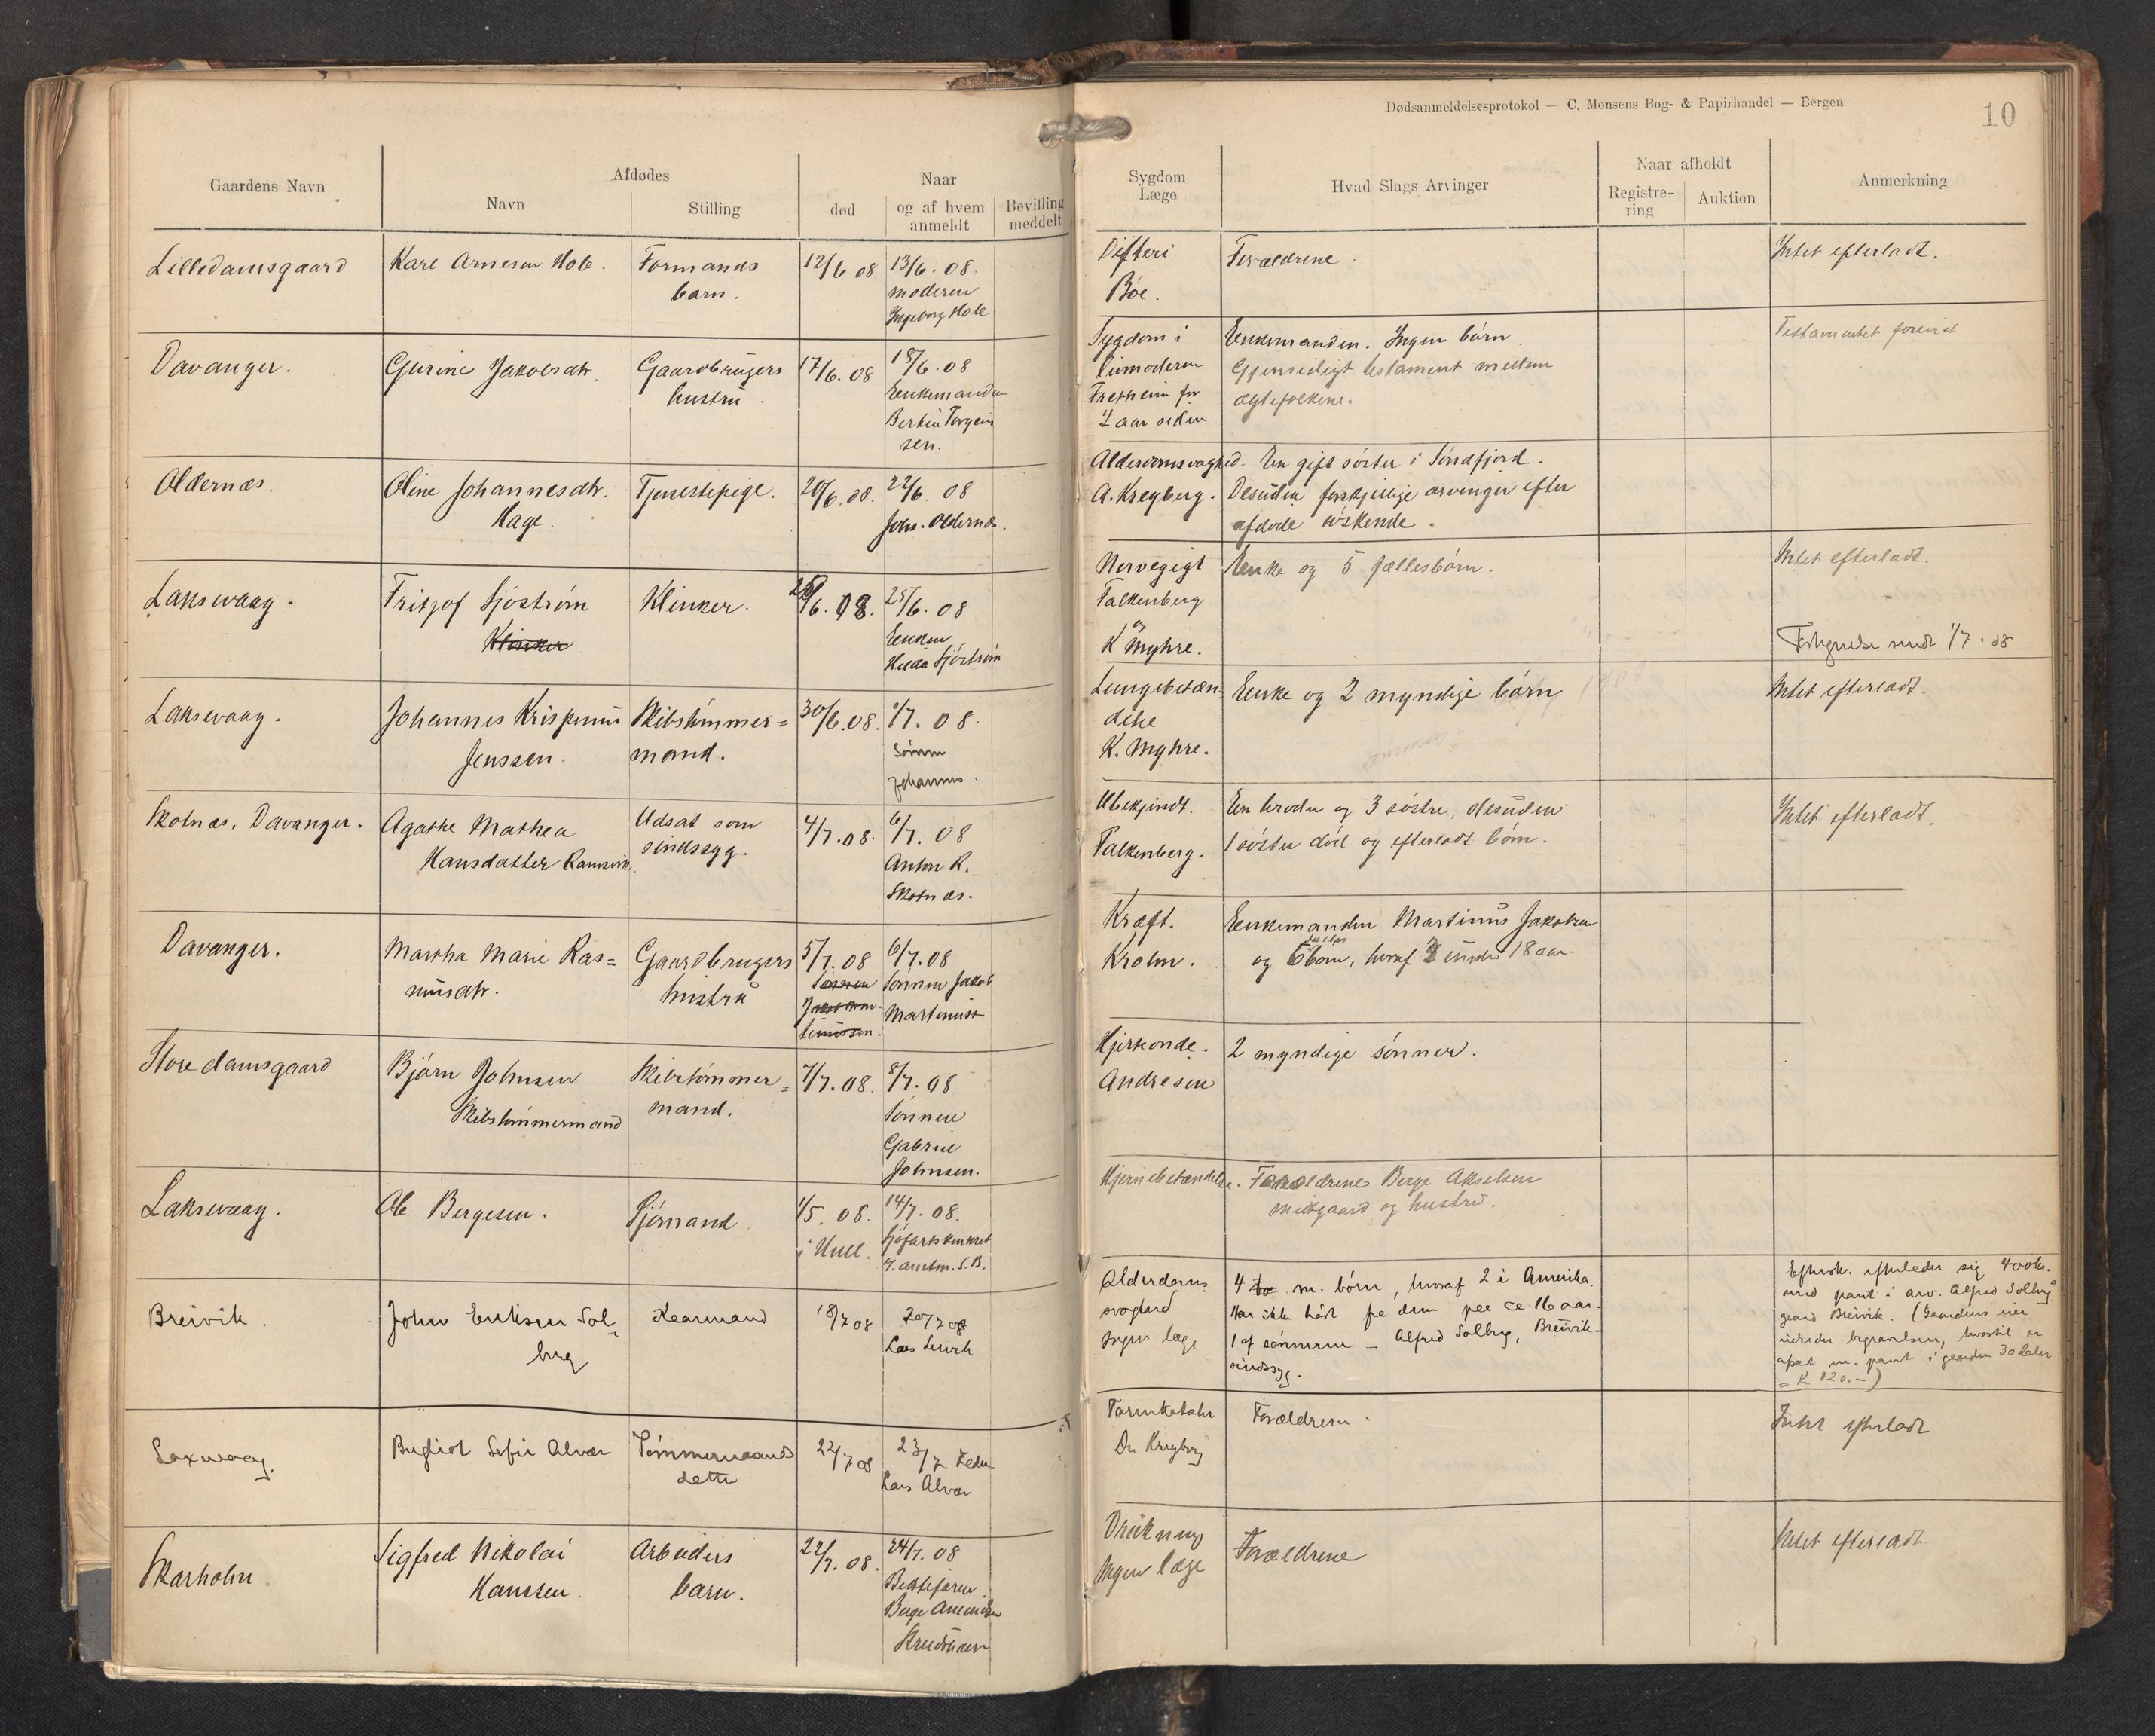 Dødsanmeldelsesprotokol — C. Monsens Bog- & Papirhandel — Bergen
10
Gaardens Navn
Afdødes
Navn
Stilling
død
Naar
og af hvem
anmeldt
Bevilling
meddelt
Sygdom
Læge
Hvad Slags Arvinger
Naar afholdt
Registre-
ring
Auktion
Anmerkning
Lilledamsgaard
Karl Arnesen Hole.
Formands
barn.
12/6 08
13/6. 08.
moderen
Ingeborg Hole
Difteri
Bøe.
Forældrene.
Intet efterladt.
Davanger.
Gurine Jakobsdtr.
Gaardbrugers
hustru.
17/6. 08
18/6. 08
Enkemanden
Sygdom i
livmoderen
for
½ aar siden
Enkemanden. Ingen børn.
Gjensidigt testament mellem
ægtefolkene.
Testamentet
Oldernæs.
Oline Johannesdtr.
Hage.
Tjenestepige.
20/6. 08.
22/6. 08
Johs. Oldernæs.
Alderdomsvaghed.
A. Kreyberg.
En gift søster i Søndfjord.
Desuden forskjellige arvinger efter
afdøde søskende.
Laksevaag.
Fritjof Sjøstrøm
Klinker
Klinker.
/6. 08.
25/6. 08
Enken
Hilda Sjøstrøm
Nervegigt
Falkenberg
og
K Myhre.
Enke og 5 fællesbørn.
Intet efterladt.
sendt 1/7. 08
Laksevaag.
Johannes Krispinus
Jenssen.
Skibstømmer=
mand.
30/6. 08.
/7. 08.
Sønnen
Johannes.
Lungebetæn-
delse
K. Myhre.
Enke og 2 myndige børn
Intet efterladt.
Skotnæs, Davanger.
Agathe Mathea
Hansdatter Ramsvik.
Udsat som
sindssyg.
4/7. 08.
6/7. 08
Anton R.
Skotnæs.
Ubekjendt.
Falkenberg.
En broder og 3 søstre, desuden
1 søster død og efterladt børn.
Intet efterladt.
Davanger.
Martha Marie Ras=
musdtr.
Gaardbrugers
hustru
5/7. 08
6/7. 08
Sønnen Jakob
Kræft.
Krohn.
Enkemanden Martinus Jakobsen
og 6 børn, hvoraf under 18 aar.
Store damsgaard
Bjørn Johnsen
Skibstømmermand
Skibstømmer=
mand.
7/7. 08.
8/7. 08
Sønnen
Gabriel
Johnsen.
Hjerteonde.
Andresen
2 myndige sønner.
Laksevaag.
Ole Bergesen.
Sjømand
1/5. 08.
i Hull.
14/7. 08.
Hjernebetændelse.
Forældrene Berge Akselsen
Midtgaard og hustru.
Breivik.
John Eriksen Sol=
berg
Kaarmand
18/7 08
20/7 08
Lars
Alderdoms
svaghed
Ingen læge
4 m. børn, hvoraf 2 i Amerika.
Har ikke hørt fra dem paa ca 16 aar.
1 af sønnerne – Alfred Solberg, Breivik –
sindssyg.
efterlader sig 400 kr.
med pant i arv. Alfred Solbergs
gaard Breivik. (Gaardens eier
m. pant i gaarden 30 daler
= K. 120.–)
Laxevaag.
Sofie Alvær
Tømmermands
datter
22/7 08
23/7 Faderen
Lars Alvær
Tarmkatarh
Dr Kreyberg
Forældrene.
Intet efterladt
Skarholm.
Sigfred Nikolai
Hanssen.
Arbeiders
barn.
22/7. 08.
24/7. 08
Bestefaren
Drukning
Ingen læge
Forældrene
Intet efterladt